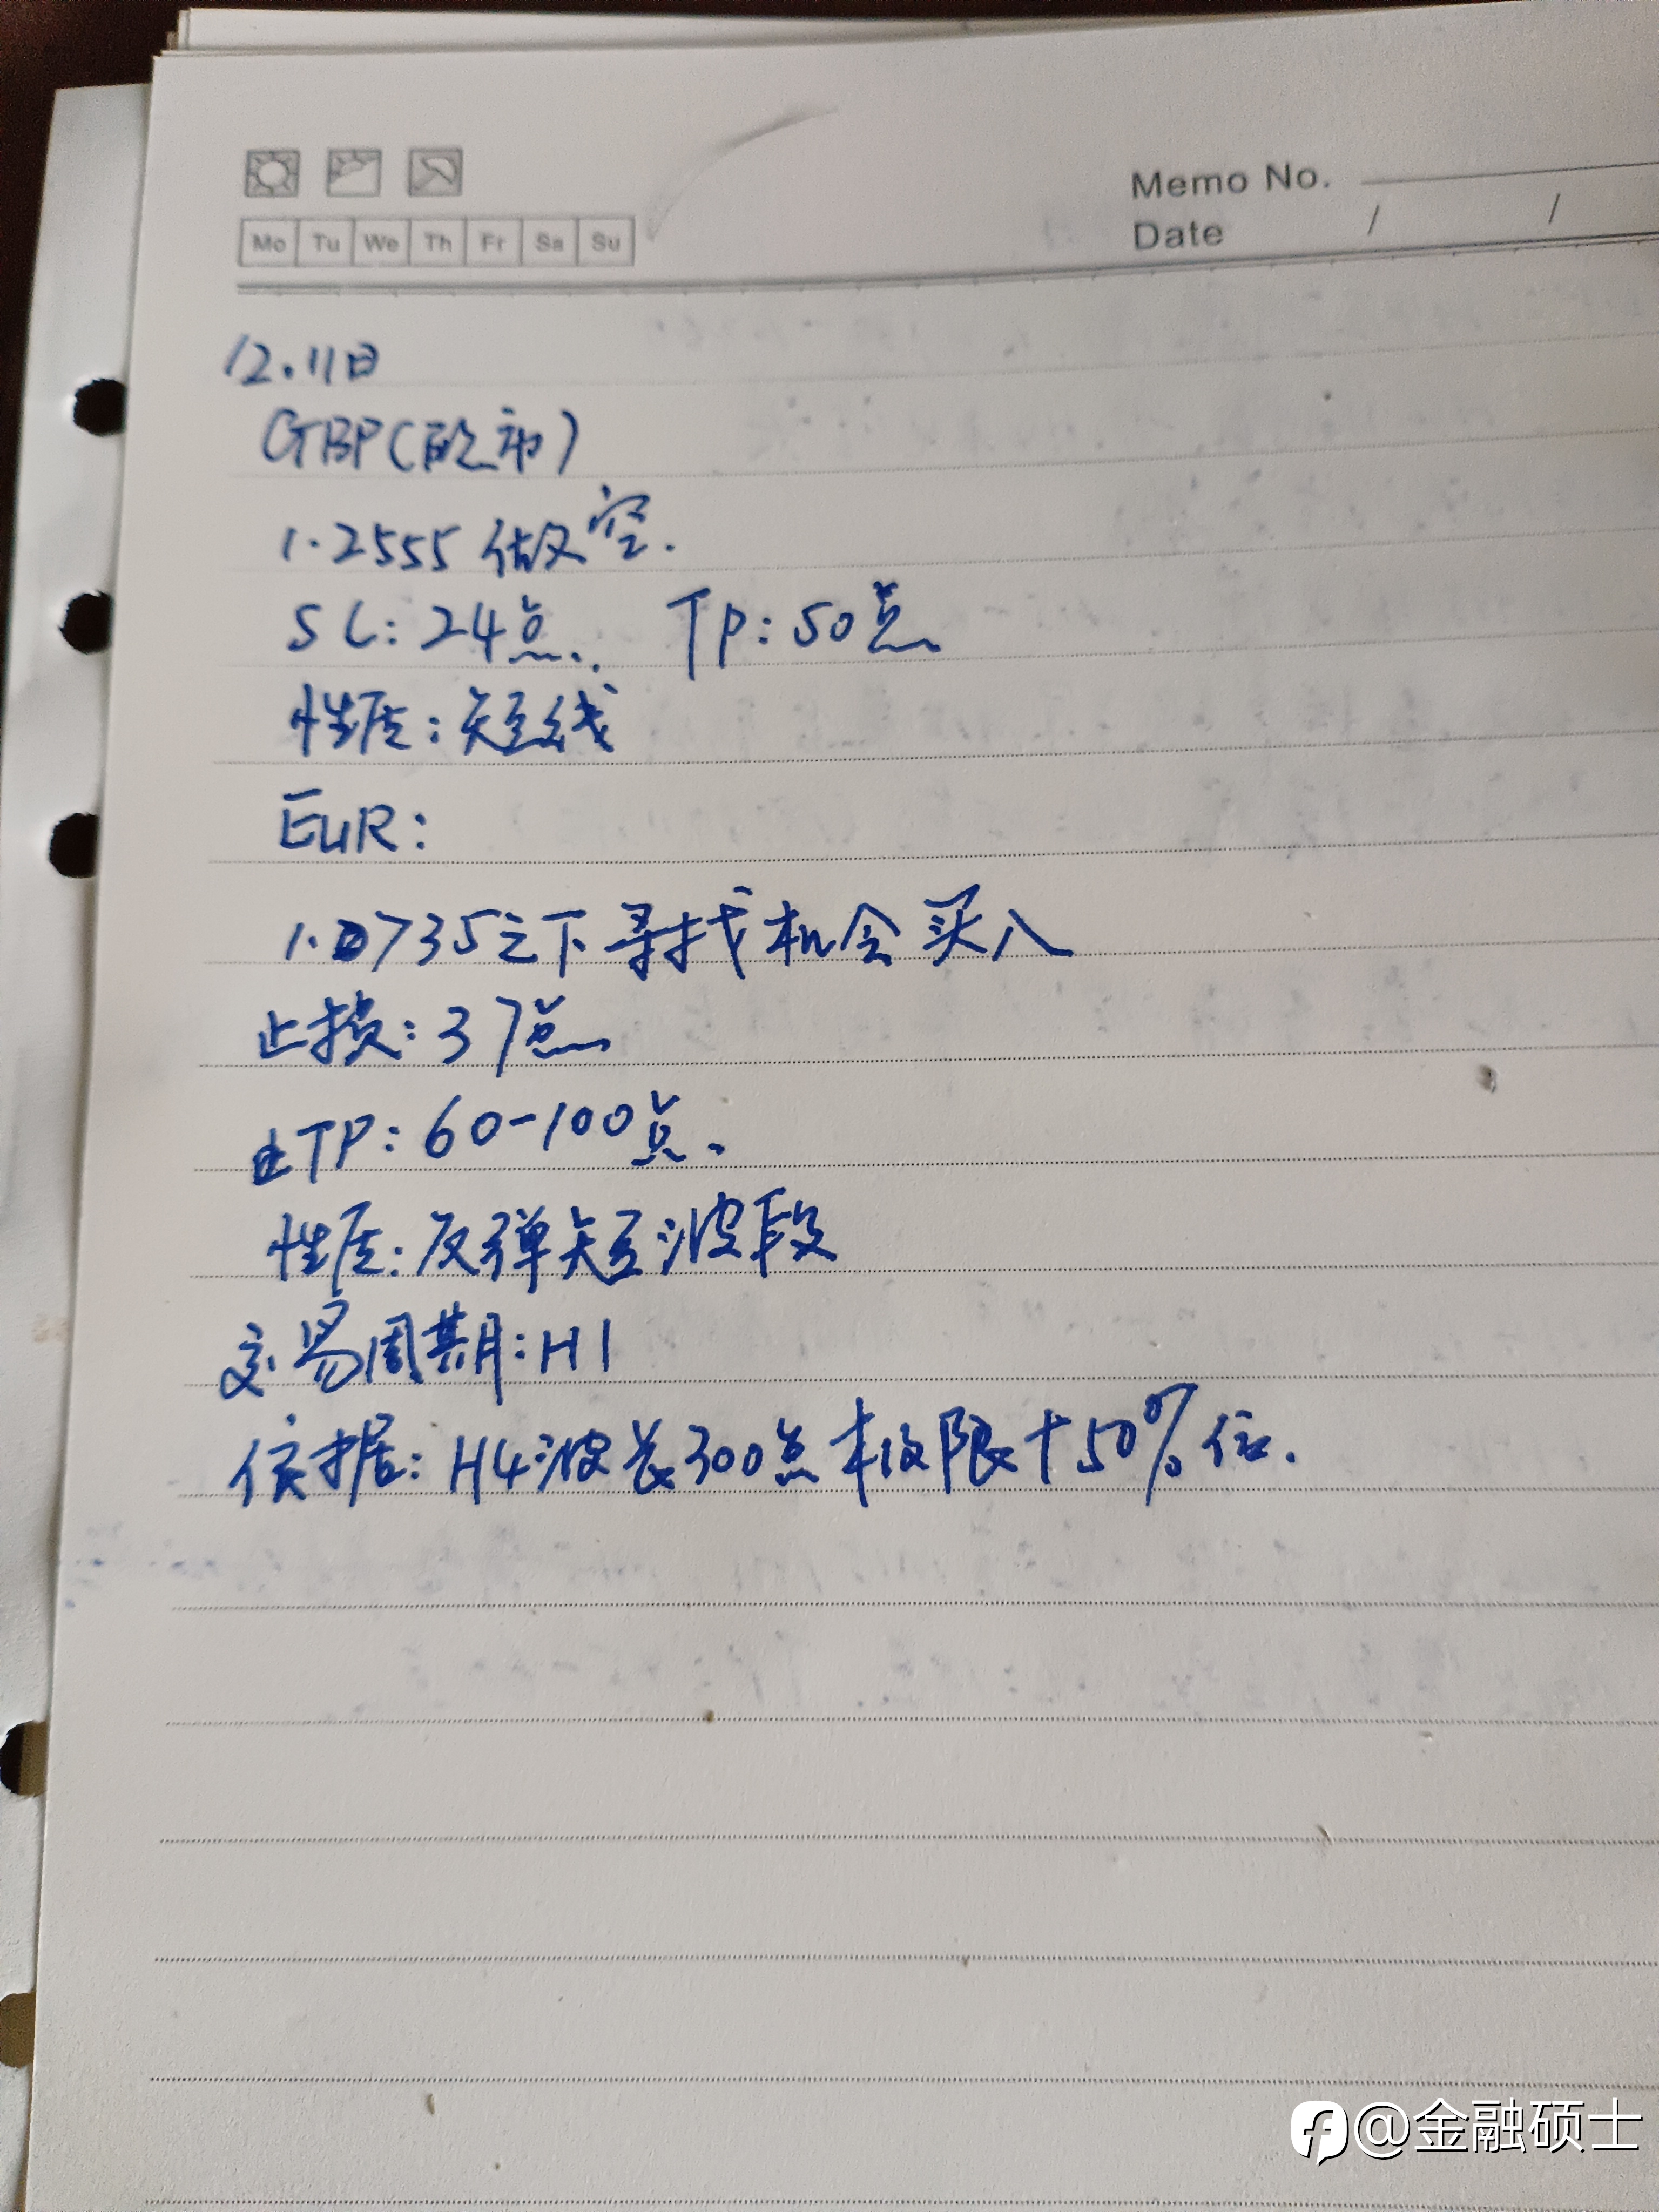 Memo No.
Date / /
Mo Tu We Th Fr Sa Su
12.11日
GBP(欧市)
1.2555做空.
SL:24点. TP:50点
性质:短线
EUR:
1.0735之下寻找机会买入
止损:37点
TP:60-100点.
性质:反弹短波段
交易周期:H1
依据:H4波长300点极限+50%位.
@金融硕士